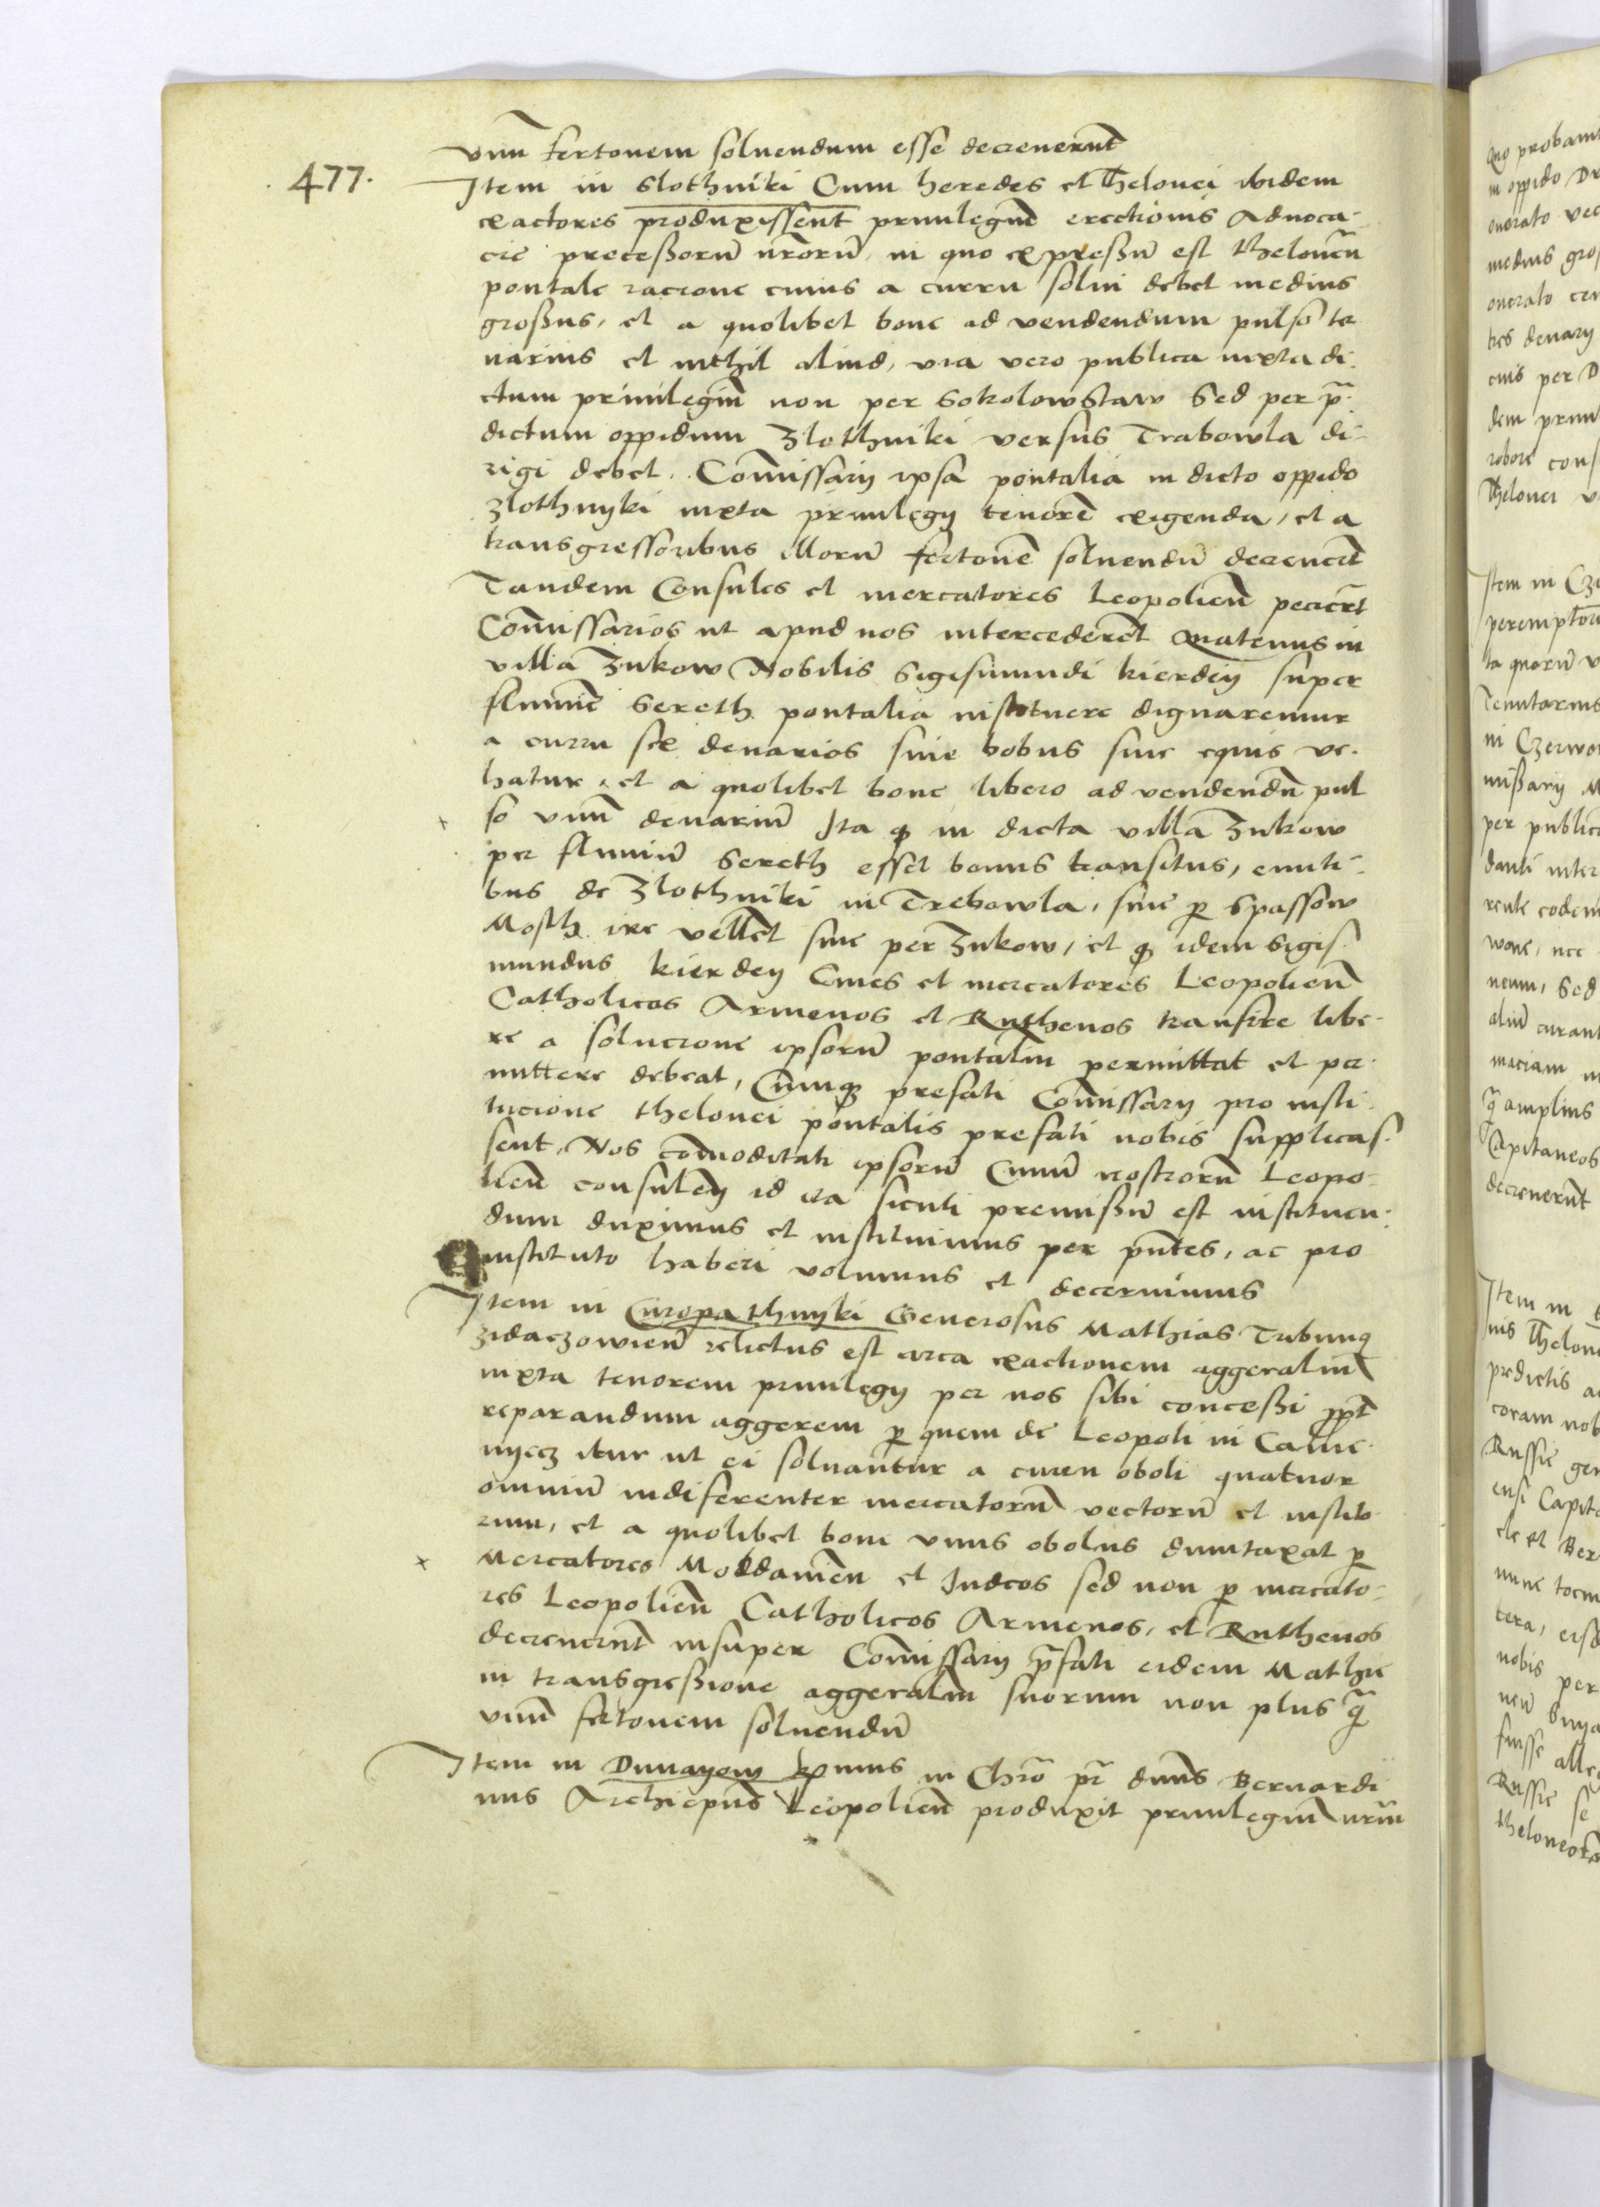 477.
vnū fertonem soluendum esse decreuerūt
Item in Slothniki Cum heredes et Thelonei ibidem
exactores produxissent priuilegiū erectionis Aduoca-
cie precessorū nrōrū, in quo expressū est thelonēū
pontale racione cuius a curru solui debet medius
grossus, et a quolibet boue ad vendendum pulso te
narius et nihil aliud, via vero publica iuxta di-
ctum priuilegiū non per Sokolowstaw Sed per p̄-
dictum oppidum Zlothniki versus Trabowla di-
rigi debet. Com̄issarij ipsa pontalia in dicto oppido
Zlothnyki iuxta priuilegij tenorē exigenda, et a
transgressoribus illorū fertonē soluendū decreuerūt
Tandem Consules et mercatores Leopolieñ pecierūt
Com̄issarios ut apud nos intercederēt Quatenus in
villa Zukow Nobilis Sigismundi kierdeij super
fluuiū Sereth pontalia instituere dignaremur
a curru sex denarios siue bobus siue equis ve-
hatur, et a quolibet boue libero ad vendendū pul
so vnū denariū Ita q̄ in dicta villa Zukow
per fluuiū Sereth esset bonus transitus, eunti-
bus de Zlothniki in Trebowla, siue p̄ Spassow
Mosth ire vellēt siue per Zukow, et q̄ idem Sigis-
mundus kierdeij Ciues et mercatores Leopolieñ
Catholicos Armenos et Ruthenos transire libe-
re a solucione ipsorū pontaliū permittat et per-
mittere debeat, Cumq̄ prefati Com̄issarij pro insti-
tucione thelonei pontalis prefati nobis supplicas-
sent, Nos com̄oditati ipsorū Ciuiū nostrorū Leopo-
lieñ consulēn id ita sicuti premissū est instituen-
dum duximus et instituimus per pn̄tes, ac pro
instituto haberi volumus et decernimus
Item in Curopathnyki Generosus Mathias Tribunꝫ
Zidaczowieñ relictus est circa exactionem aggeraliū
iuxta tenorem priuilegij per nos sibi concessi p̄p̄t
reparandum aggerem p̄ quem de Leopoli in Came-
nyecz itur ut ei soluantur a curru oboli quatuor
omniū indiferenter mercatorū vectorū et instito-
rum, et a quolibet boue vnus obolus dumtaxat p̄
Mercatores Moldauieñ et Iudeos sed non p̄ mercato-
res Leopolieñ Catholicos Armenos, et Ruthenos
decreuerūt insuper Com̄issarij p̄fati eidem Mathie
in transgressione aggeraliū suorum non plus q̄
vnū fertonem soluendū
Item in Dunayow Rṃus in Chrō pr̄ dn̄us Bernardi
nus Archiepūs Leopolieñ produxit priuilegiū nrm̄
Quo probauit
in oppido
onerato
medius
onerato
tres denarij
cuis per
dem
robore
Thelonei
Item in
per
ta quorū
Tenutarius
in
missarij
per
danti
rente eodem
neum, Sed
aliū
q̄ amplius
Capitaneos
decreuerūt
Item in
nis
predictis
coram
Russie
ensi
nunc
nobis per
Russie se